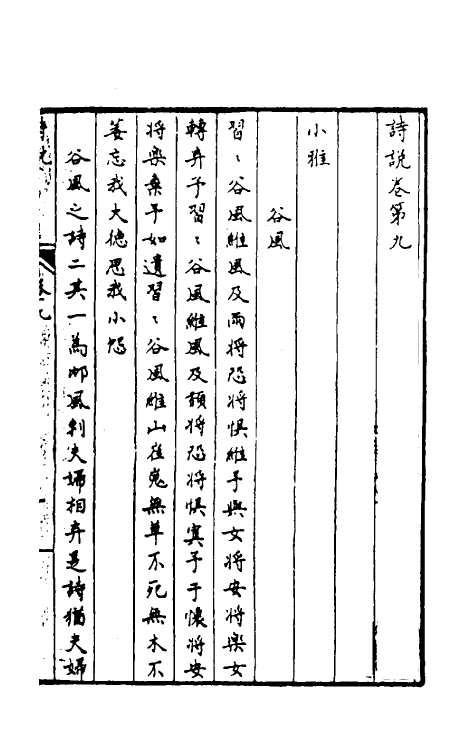 詩說卷第九
小雅
谷風
習〻谷風維風及雨將恐將懼維予與女將安將樂女
轉弃予習〻谷風維風及頹將恐將懼寘予于懷將安
將樂棄予如遺習〻谷風維山崔嵬無草不死無木不
萎忘我大德思我小怨
谷風之詩二其一為邶風刺夫婦相弃是詩猶夫婦